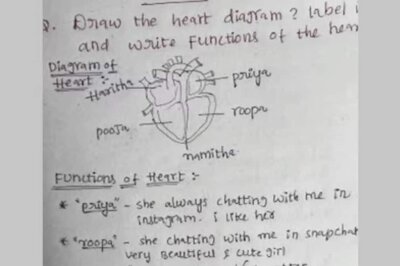 Q. Draw the heart diagram? Label
and write Functions of the
Diagram of
Heart :-
Haritha
priya
roopa
pooja
namitha
Functions of Heart :-
* "priya" - she always chatting with me in
instagram. i like her
* "roopa" - she chatting with me in snapchat
very Beautiful & cute girl